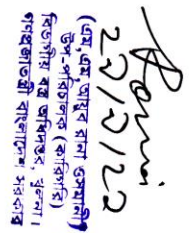 রানা ওসমানী)
উপ-পরিচালক (কারিগরি)
বিভাগীয় বস্ত্র অধিদপ্তর, খুলনা।
গণপ্রজাতন্ত্রী বাংলাদেশ সরকার